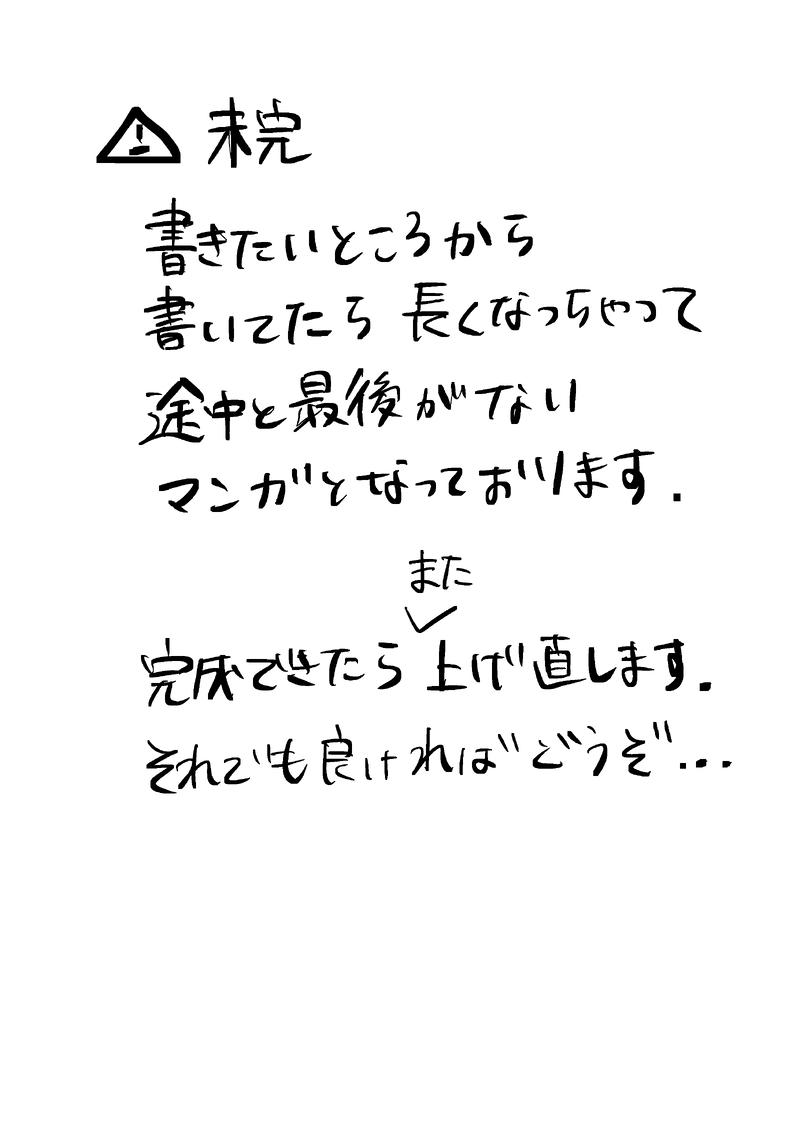 ⚠ 未完
書きたいところから
書いてたら 長くなっちゃって
途中と最後がない
マンガとなっております.
また
完成できたら 上げ直します.
それでも良ければどうぞ...